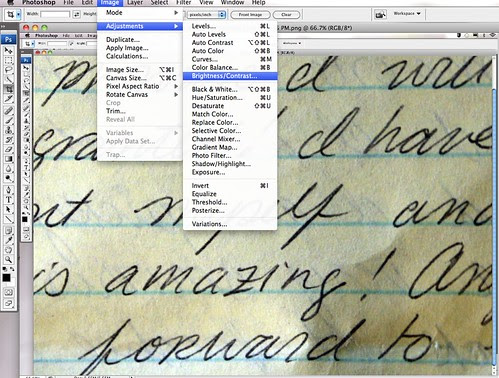 Image Layer Select Filter View Window Help
Width: Height: pixels/inch Front Image Clear Workspace
PM.png @ 66.7% (RGB/8*)
Mode
Adjustments
Duplicate...
Apply Image...
Calculations...
Image Size... ⌥⌘I
Canvas Size... ⌥⌘C
Pixel Aspect Ratio
Rotate Canvas
Crop
Trim...
Reveal All
Variables
Apply Data Set...
Trap...
Levels... ⌘L
Auto Levels ⇧⌘L
Auto Contrast ⌥⇧⌘L
Auto Color ⇧⌘B
Curves... ⌘M
Color Balance... ⌘B
Brightness/Contrast...
Black & White... ⌥⇧⌘B
Hue/Saturation... ⌘U
Desaturate ⇧⌘U
Match Color...
Replace Color...
Selective Color...
Channel Mixer...
Gradient Map...
Photo Filter...
Shadow/Highlight...
Exposure...
Invert ⌘I
Equalize
Threshold...
Posterize...
Variations...
d have
myself and
is amazing! An
forward to